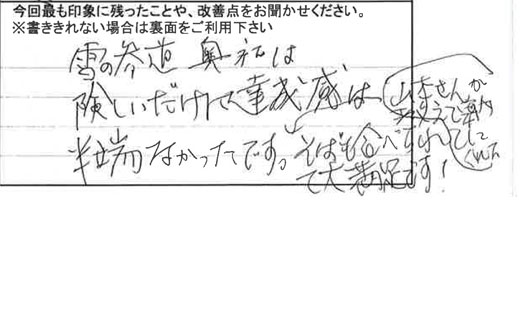 今回最も印象に残ったことや、改善点をお聞かせください。
※書ききれない場合は裏面をご利用下さい
雪の参道 奥社は
険しいだけで達成感は
半端なかったです。そばも食べすれて
て大満足です!
山本さんが
支えて案内
して
くれた